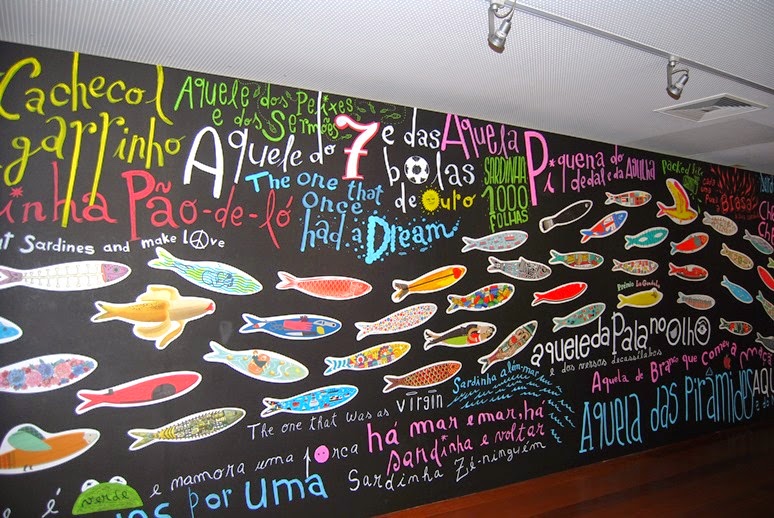 Cachecol
garrinho
Aquele dos Peixes
e dos Sermões
Aquele do 7 e das
bolas
de Ouro
Aquela
Piquena do
dedal e da Agulha
SARDINHA
1000
FOLHAS
inha Pão-de-ló
The one that
once
had a Dream
Sardines and make LOve
Brasa
aquele da Pala no Olho
e dos versos decassílabos
Aquela de Branco que comeu a maçã
Aquela das Pirâmides
Sardinha além-mar
The one that Was as virgin
há mar e mar, há
sardinha e voltar
Sardinha Zé-ninguém
e é verde e mamora uma forca
por uma